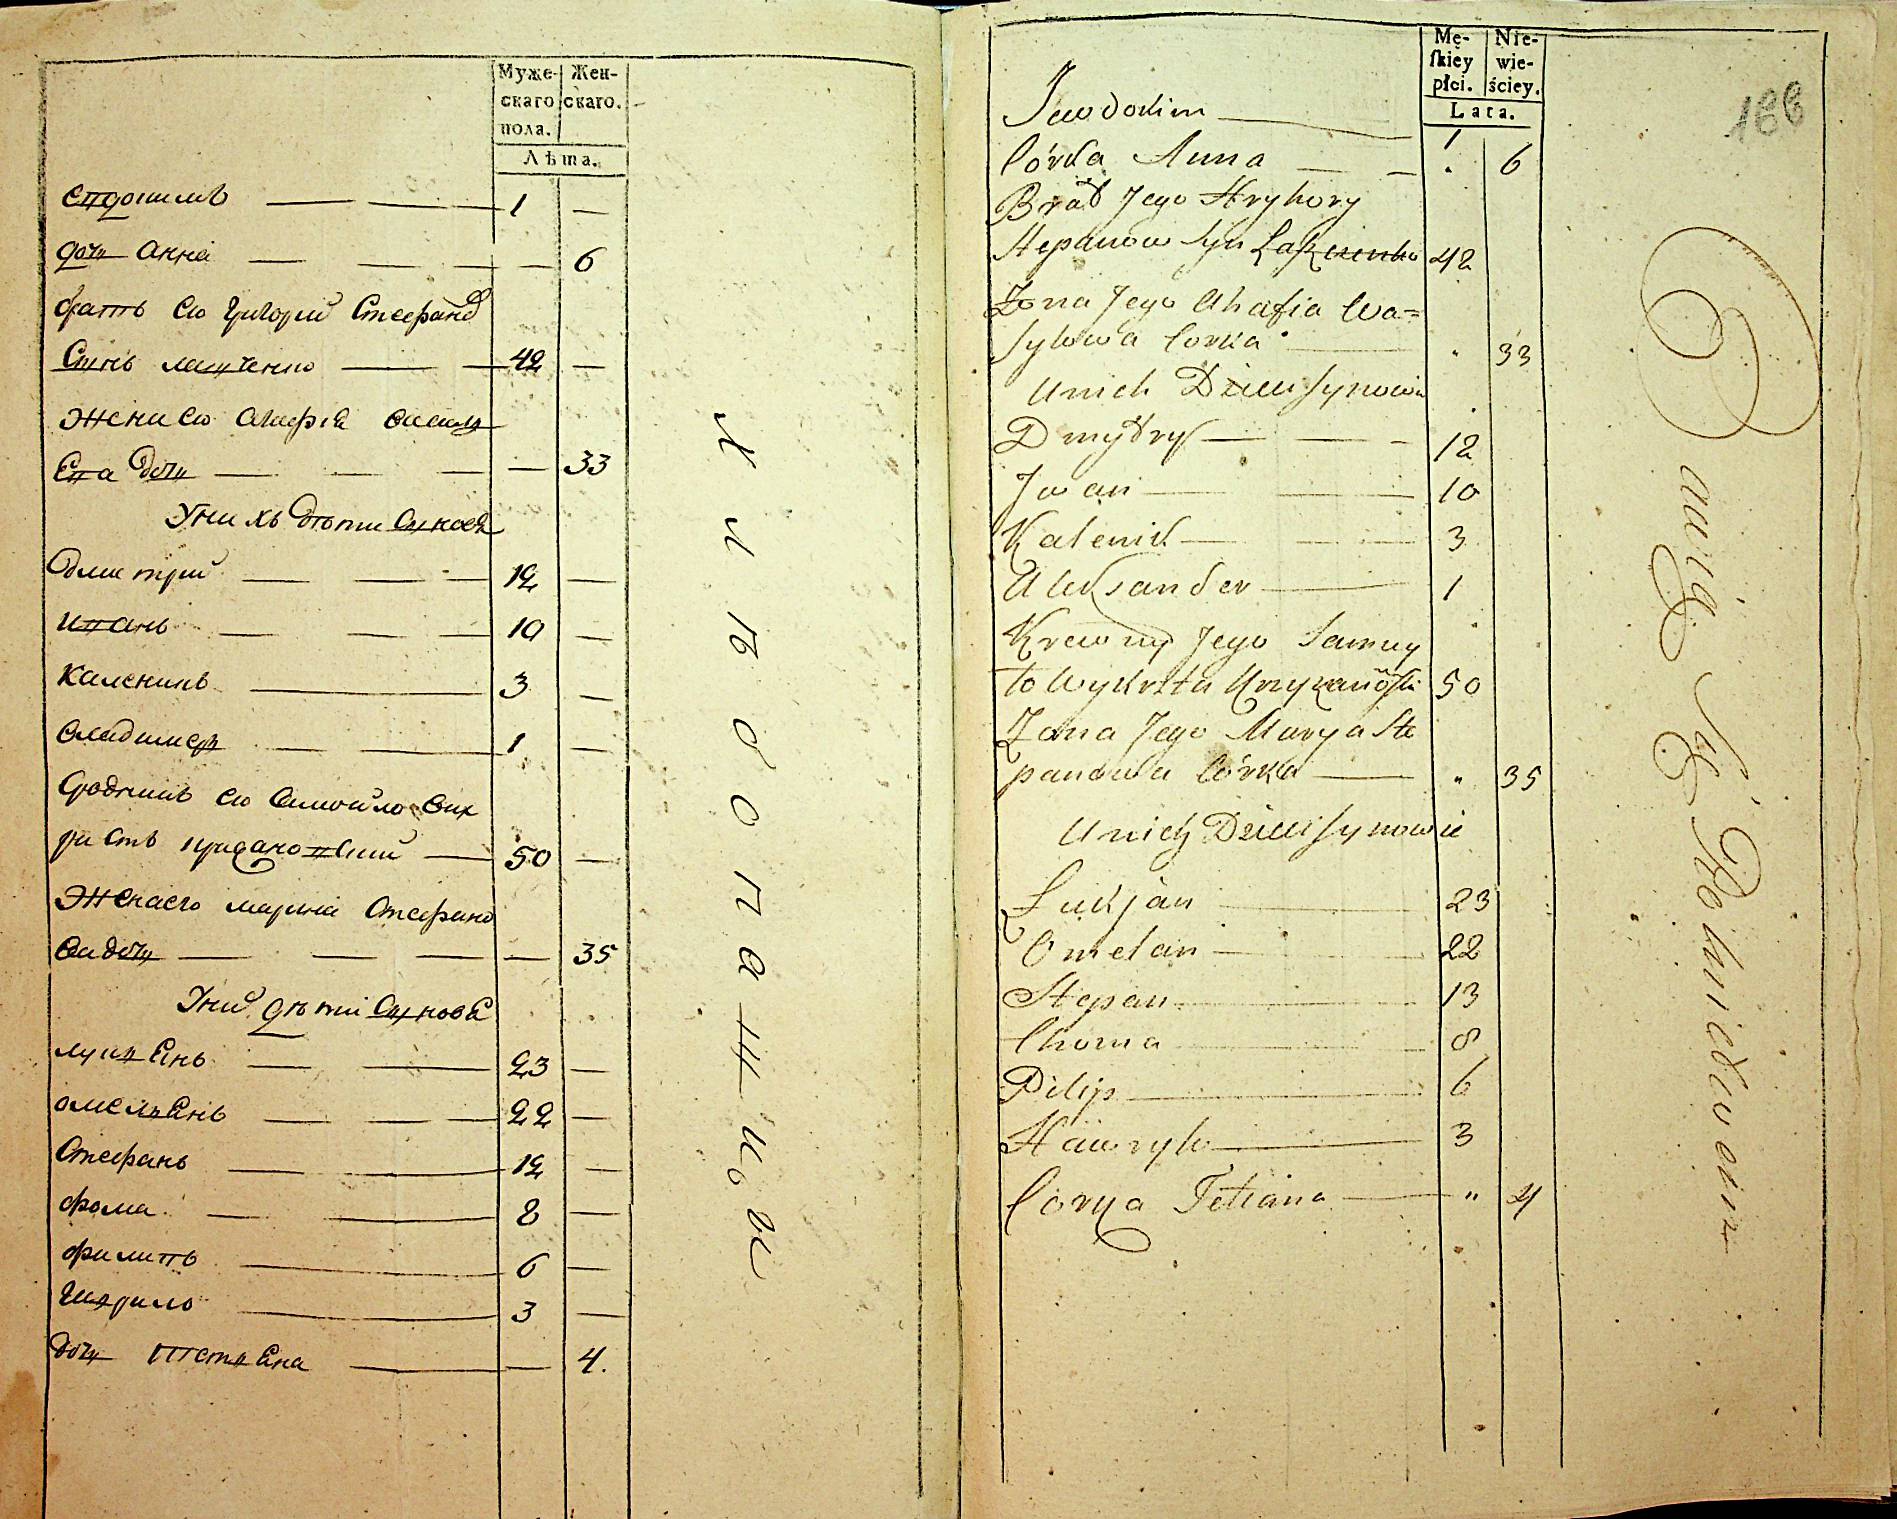 Муже-
скаго
пола.
Жен-
скаго.
Лѣта.
Евдокимъ 1 —
дочь Анна — 6
братъ Его Григорий Стефановъ
Сынъ лащенко 42 —
Жена Его Агафия василь
Ева дочь — 33
У нихъ дѣти Сыновя
Дмитрий 12 —
иванъ 10 —
каленикъ 3 —
владимеръ 1 —
Сродникъ Его Самойло вик
ристъ крижановский 50 —
Жена его марина Стефано
ва дочь — 35
У них дѣти Сынове
лукиенъ 23 —
омельенъ 22 —
Стефанъ 12 —
фома 8 —
филипъ 6 —
гаврило 3 —
дочь тетьена — 4.
Mę-
skiey
płci.
Nie-
wie-
ściey.
Lata.
188
Jewdokim 1
Córka Anna " 6
Brat Jego Hryhory
Stepanow Syn 42
Żona Jego Ahafia Wa=
sylowa Corka " 33
Unich Dzieci Synowie
Dmytry 12
Iwan 10
Kalenik 3
Aleksander 1
Krewny Jego Samuy
ło Wykrzta Krzyżanowski 50
Żona Jego Marya Ste
panowa Córka " 35
Unich Dzieci Synowie
Łukjan 23
Omelan 22
Stepan 13
Choma 8
Pilip 6
Hawryło 3
Corka Tetiana " 4